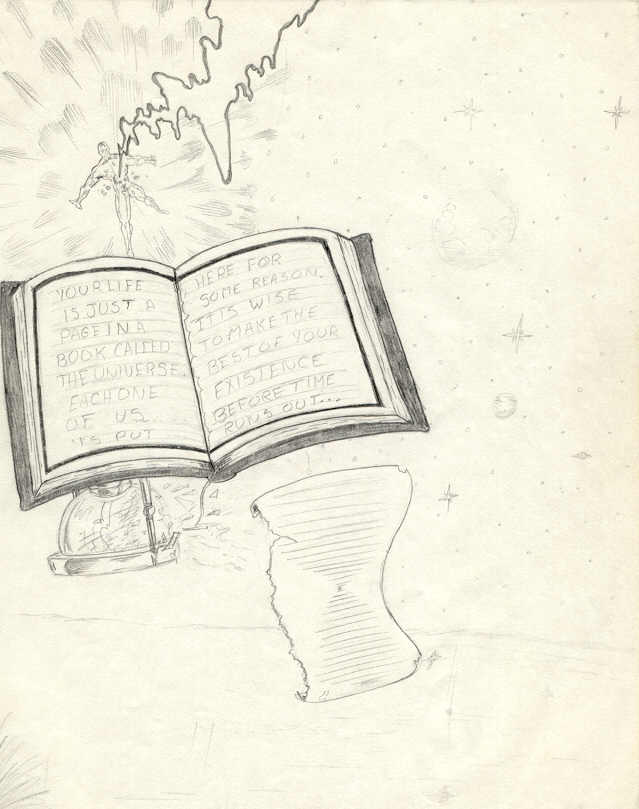 YOUR LIFE
IS JUST A
PAGE IN A
BOOK CALLED
THE UNIVERSE.
EACH ONE
OF US....
IS PUT
HERE FOR
SOME REASON.
IT IS WISE
TO MAKE THE
BEST OF YOUR
EXISTENCE
BEFORE TIME
RUNS OUT...